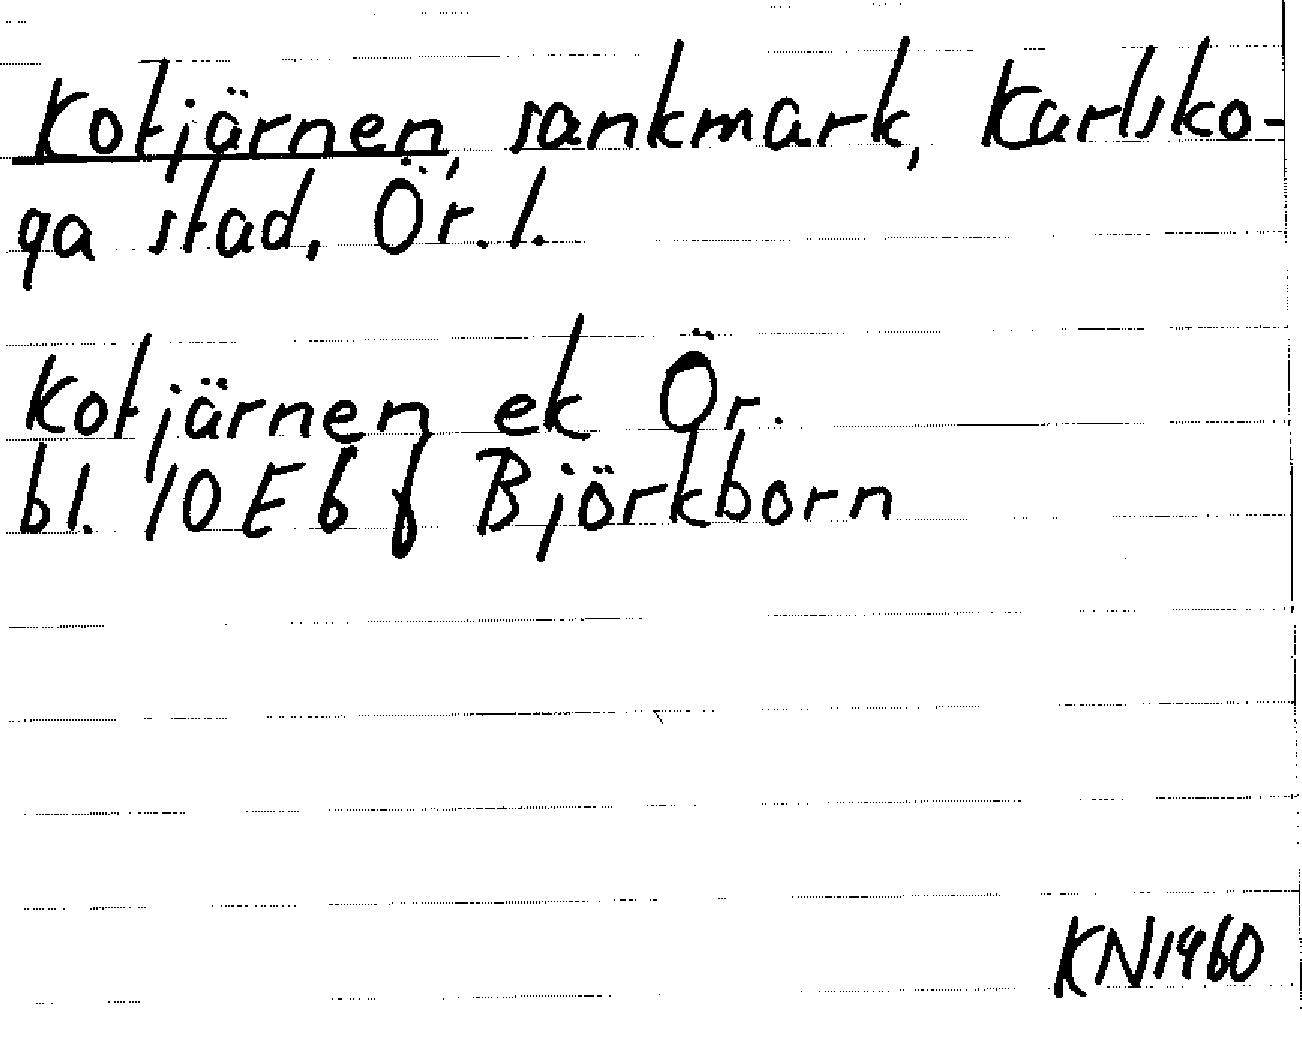 Kotjärnen, sankmark, Karlsko-
ga stad, Ör. l.
Kotjärnen ek Ör.
bl. 10E6f Björkborn
KN1960